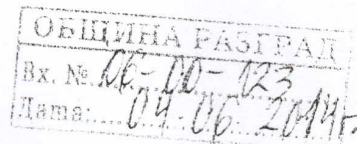 ОБЩИНА РАЗГРАД
Вх. № 06-00-123
Дата: 04.06.2014г.